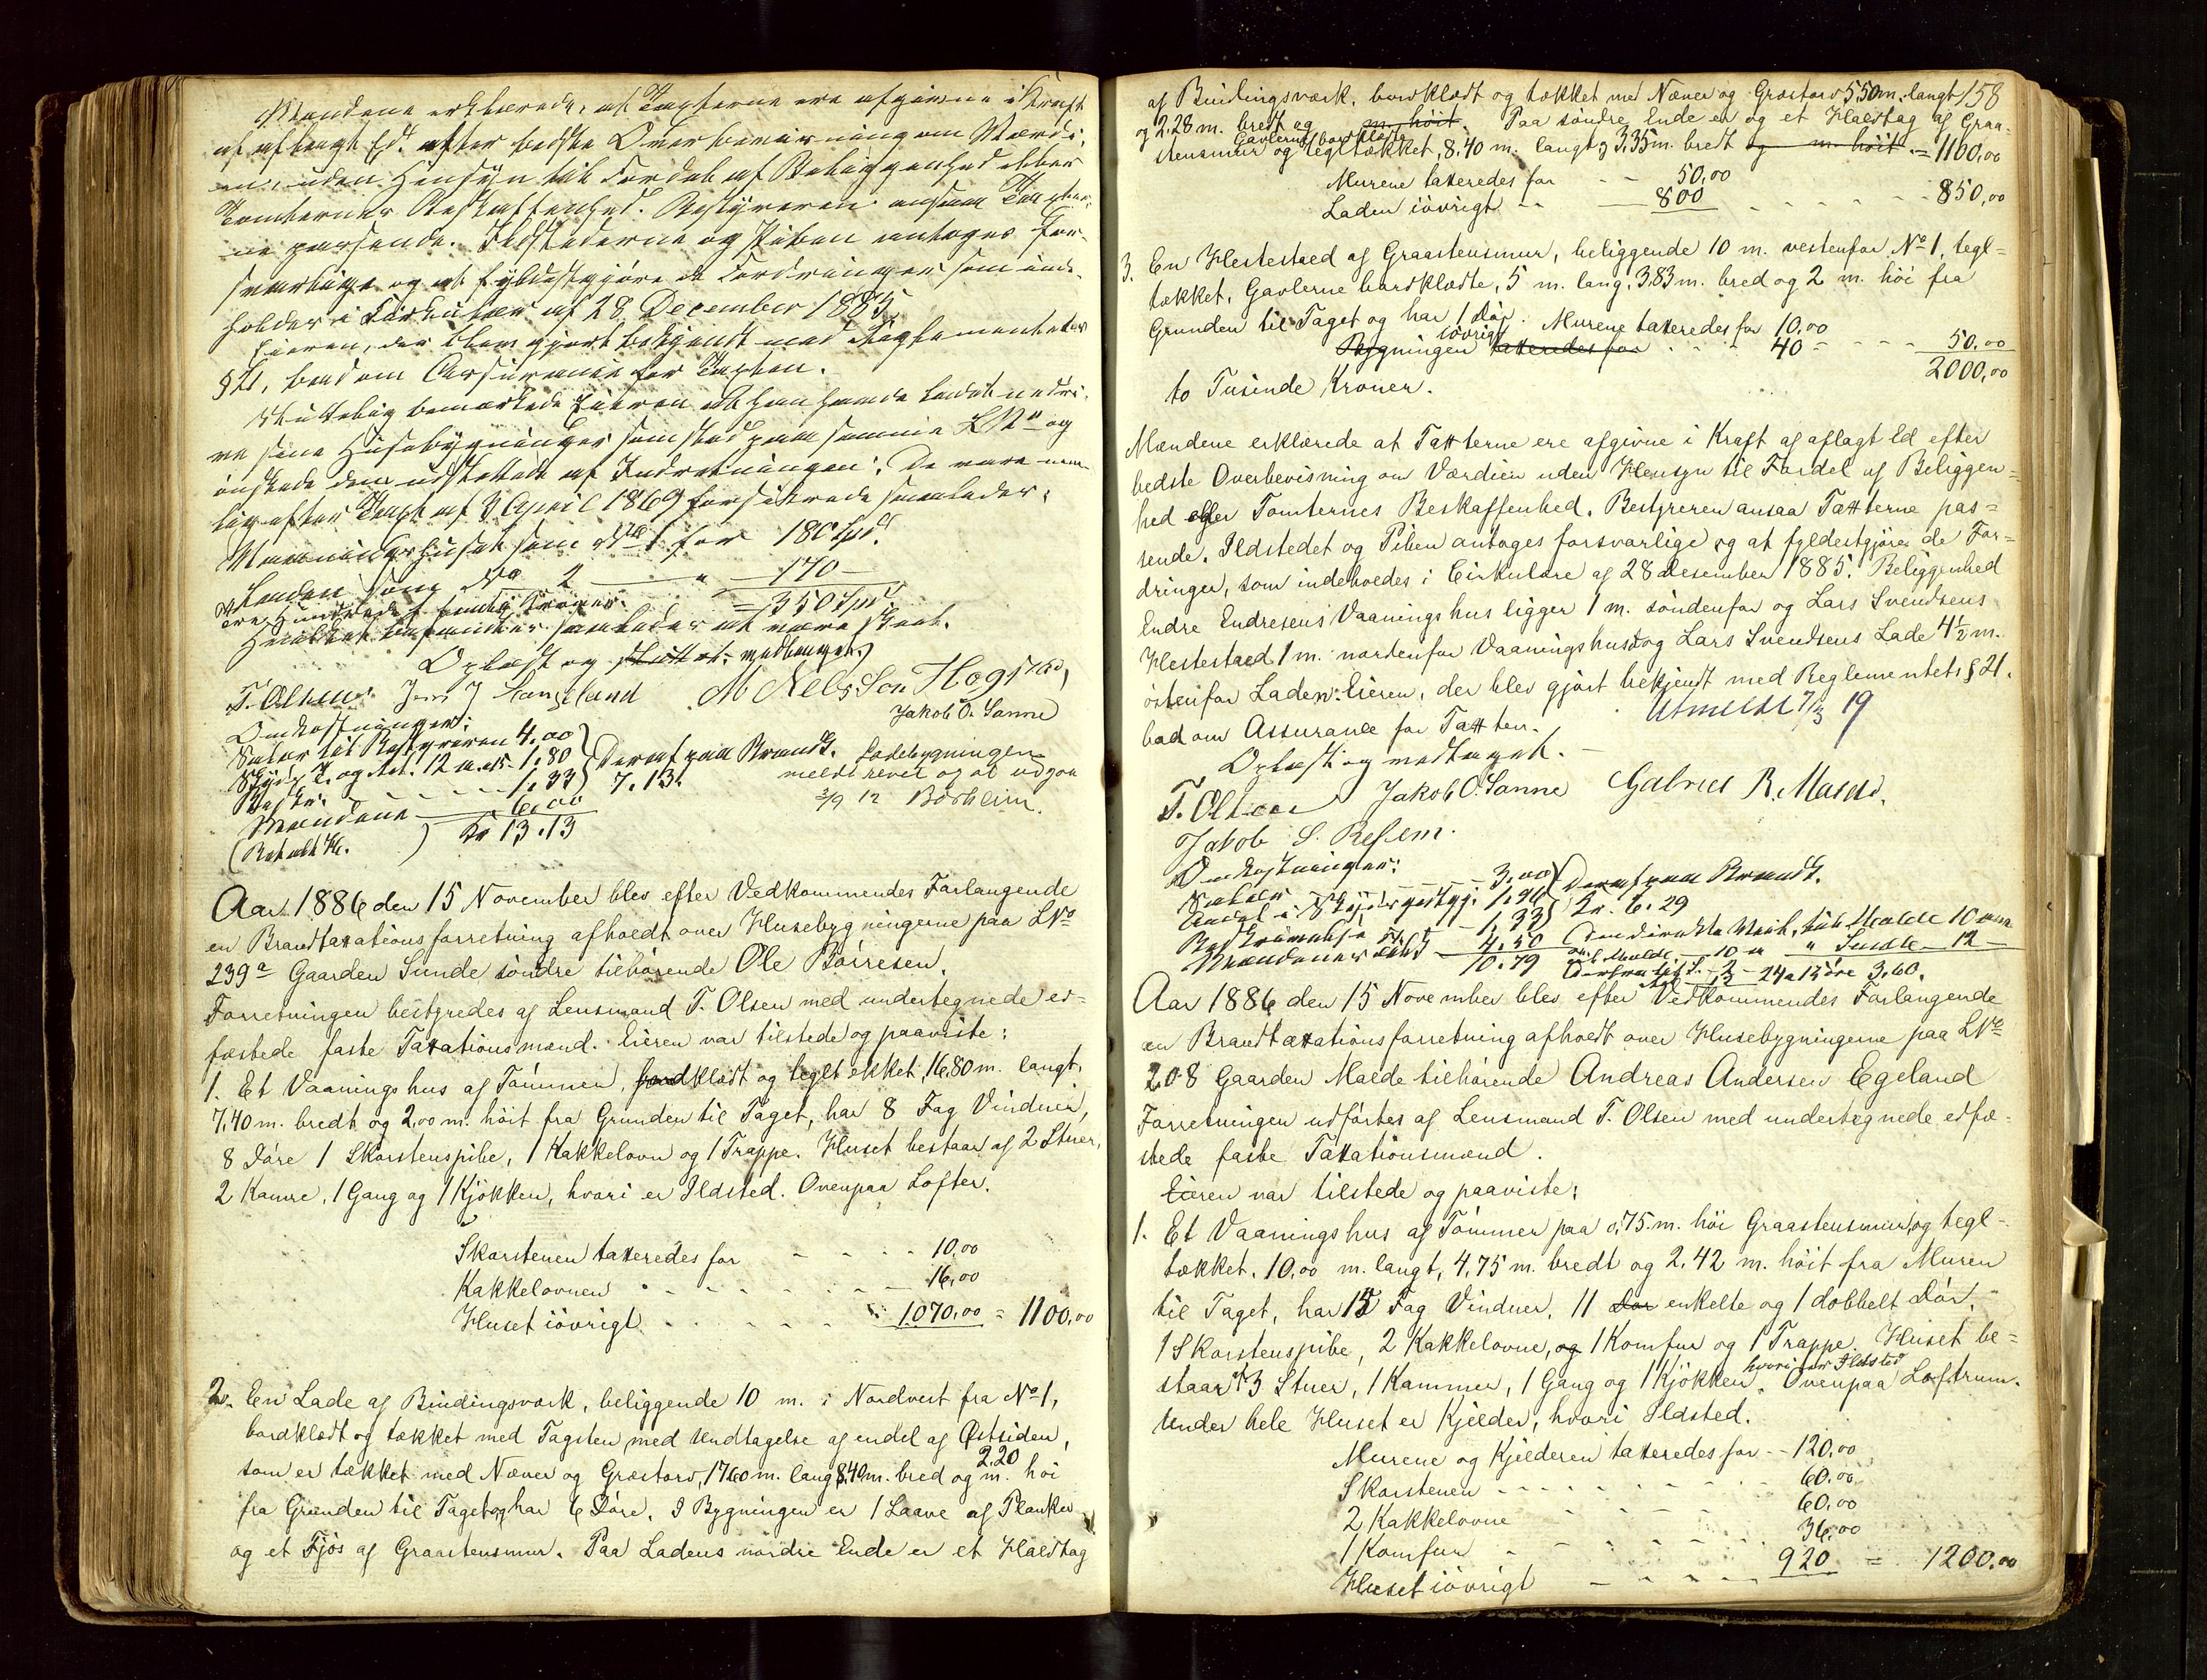 Mændene erklærede, at Taxterne ere afgivne i Kraft
af aflagt Ed efter bedste Overbevisning om Værdi-
en, uden Hensyn til Fordel af Beliggenhed eller
Tomternes Beskaffenhed. Bestyreren ansaa Taxter-
ne passende. Ildstederne og Piben antoges for-
svarlige og at fyldestgjøre de Fordringer som inde-
holdes i Cirkulær af 28 December 1885.
Eieren, der blev gjort bekjendt med Reglementets
§ 21, bad om Assurance for Taxten.
Sluttelig bemærkede Eieren at han havde ladet nedri-
ve sine Husebygninger som stod paa samme LNo og
ønskede dem udslettede af Indretningen. De vare nem-
lig efter Taxt af 3 April 1869 forsikrede saaledes:
Vaaningshuset som No 1 for 180 Spd.
Laden som No 2 — " — 170 —
= 350 Spd
Hundrede
saaledes at være skeet.
Oplæst og vedtaget.
T. Olsen Jens J Langeland M Nels Son Hogstad,
Jakob O. Sanne
Omkostninger:
Salær til Bestyreren 4.00
Skyds T. og Ret. 12 1.80 Deraf paa Brandk. Ladebygningen
1.33 7.13. meldt revet og at udgaa
Mændene 6.00 3/9 12 Borheim.
(Betalt Kr. ) Kr 13.13
Aar 1886 den 15 November blev efter Vedkommendes Forlangende
en Brandtaxationsforretning afholdt over Husebygningerne paa LNo
239a Gaarden Sunde søndre tilhørende Ole Børresen.
Forretningen bestyredes af Lensmand T. Olsen med undertegnede ed=
fæstede faste Taxationsmænd. Eieren var tilstede og paaviste:
1. Et Vaaningshus af Tømmer, bordklædt og tegltækket, 16,80 m. langt,
7,40 m. bredt og 2,00 m. høit fra Grunden til Taget, har 8 Fag Vinduer,
8 Døre 1 Skorstenspibe, 1 Kakkelovn og 1 Trappe. Huset bestaar af 2 Stuer,
2 Kamre, 1 Gang og 1 Kjøkken, hvori er Ildsted. Ovenpaa Lofter.
Skorstenen taxeredes for - - - - 10,00
Kakkelovnen - - - - - - 16,00
Huset iøvrigt - - - - - 1070,00 = 1100,00
2. En Lade af Bindingsværk, beliggende 10 m. i Nordvest fra No 1,
bordklædt og tækket med Tagsten med Undtagelse af endel af Østsiden,
som er tækket med Næver og Græstorv, 17,60 m. lang 8,40 m. bred og 2.20 m. høi
fra Grunden til Taget og har 6 Døre. I Bygningen er 1 Laave af Planker
og et Fjøs af Graastensmur. Paa Ladens nordre Ende er et Haldtag
158
af Bindingsværk, bordklædt og tækket med Næver og Græstorv 5,50 m. langt
og 2.28 m. bredt og m. høit. Paa søndre Ende er og et Haldtag af Graa-
stensmur Gavlerne bordklædte og tegltækket, 8,40 m. langt og 3,35 m. bredt og m. høit. = 1100,00
Murene taxeredes for - - 50,00
Laden iøvrigt - - — 800 - - - - - - 850,00
3. En Hestestald af Graastensmur, beliggende 10 m. vestenfor No 1, tegl=
tækket, Gavlerne bordklædte, 5 m. lang, 3,83 m. bred og 2 m. høi fra
Grunden til Taget og har 1 Dør. Murene taxeredes for 10,00
Bygningen iøvrigt taxeredes for - - - 40 - - - - 50,00
2000,00
to Tusinde Kroner.
Mændene erklærede at Taxterne ere afgivne i Kraft af aflagt Ed efter
bedste Overbevisning om Værdien uden Hensyn til Fordel af Beliggen=
hed eller Tomternes Beskaffenhed. Bestyreren ansaa Taxterne pas=
sende. Ildstedet og Piben antoges forsvarlige og at fyldestgjøre de For=
dringer, som indeholdes i Cirkulære af 28 Desember 1885. Beliggenhed
Endre Endresens Vaaningshus ligger 1 m. søndenfor og Lars Svendsens
Hestestald 1 m. nordenfor Vaaningshuset og Lars Svendsens Lade 4½ m.
østenfor Laden. Eieren, der blev gjort bekjendt med Reglementets § 21.
bad om Assurance for Taxten. Utmeldt 7/3 19
Oplæst og vedtaget. —
T. Olsen Jakob O. Sanne Gabriel R. Malde.
Jakob S. Refsem.
Omkostninger:
Salær - - - - - 3.00 Deraf paa Brandk.
Andel i Skyds 1.96 Kr. 6.29
1.33
Mændenes 4.50
10.79
Aar 1886 den 15 November blev efter Vedkommendes Forlangende
en Brandtaxationsforretning afholdt over Husebygningerne paa LNo
208 Gaarden Malde tilhørende Andreas Andersen Egeland
Forretningen udførtes af Lensmand T. Olsen med undertegnede edfæ-
stede faste Taxationsmænd.
Eieren var tilstede og paaviste:
1. Et Vaaningshus af Tømmer paa 0,75 m. høi Graastensmur, og tegl-
tækket, 10,00 m. langt, 4,75 m. bredt og 2,42 m. høit fra Muren
til Taget, har 15 Fag Vinduer, 11 Dør enkelte og 1 dobbelt Dør,
1 Skorstenspibe, 2 Kakkelovne, og 1 Komfur og 1 Trappe. Huset be=
staar af 3 Stuer, 1 Kammer, 1 Gang og 1 Kjøkken hvori er Ildsted. Ovenpaa Loftrum.
Under hele Huset er Kjelder, hvori Ildsted.
Murene og Kjelderen taxeredes for - - 120,00
Skorstenen - - - - - - 60,00
2 Kakkelovne - - - - 60,00
1 Komfur - - - - - - 36,00
Huset iøvrigt - - - - - 920 = 1200,00